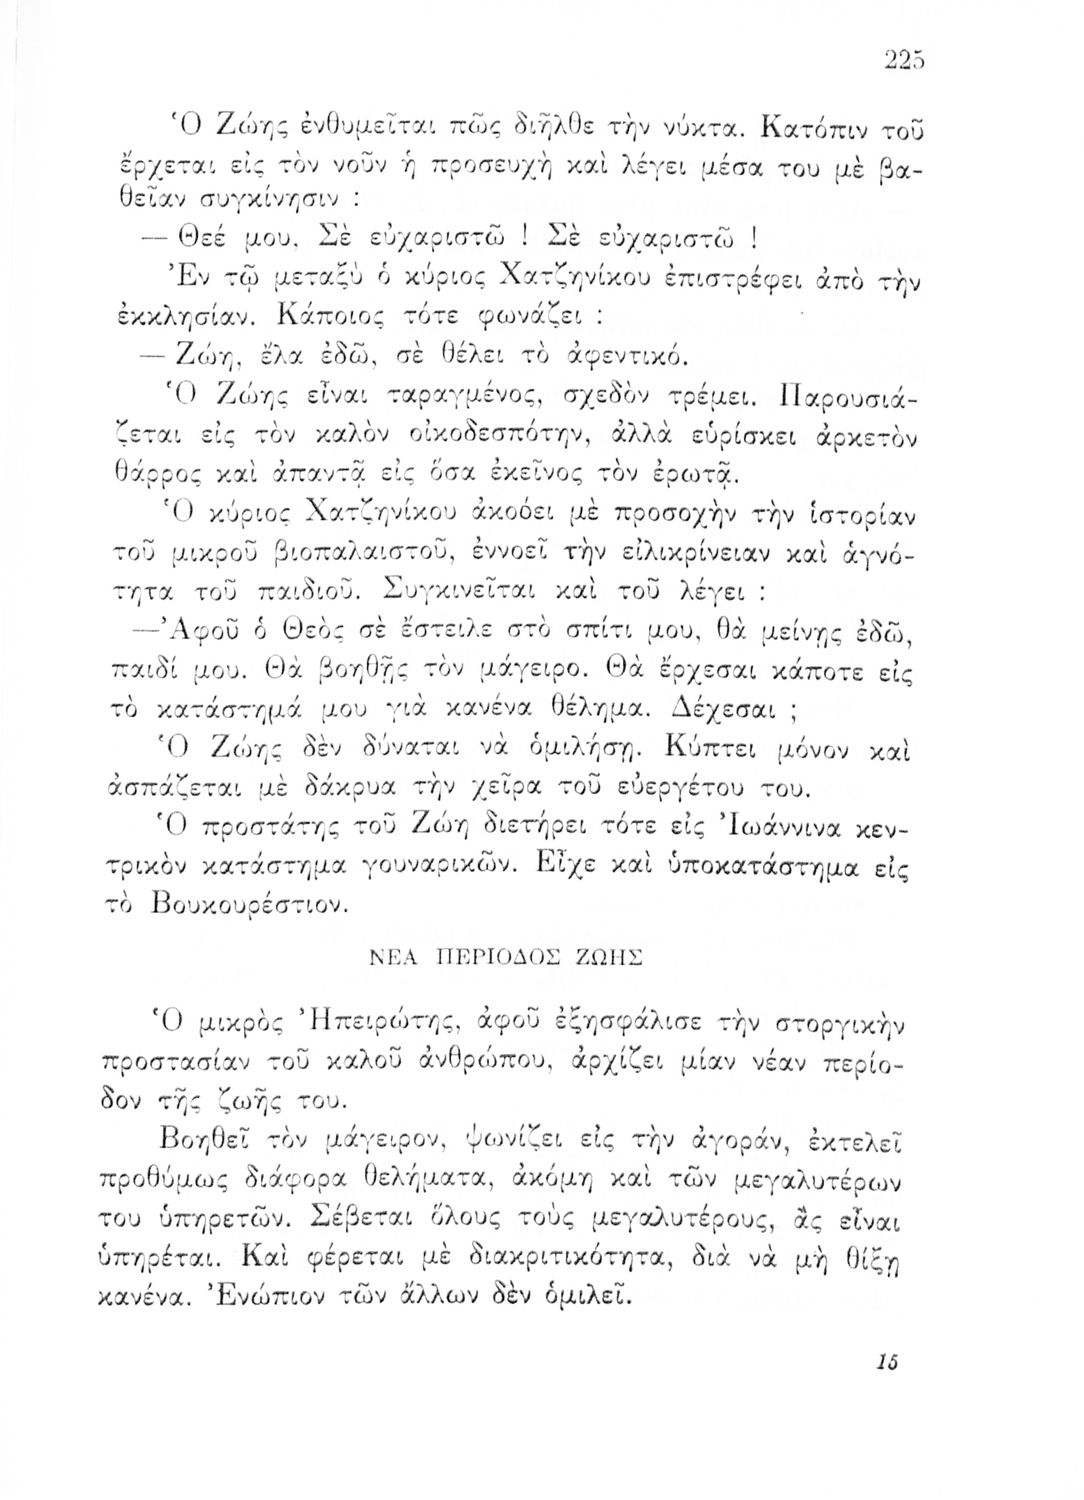 225
Ὁ Ζώης ἐνθυμεῖται πῶς διῆλθε τὴν νύκτα. Κατόπιν τοῦ
ἔρχεται εἰς τὸν νοῦν ἡ προσευχὴ καὶ λέγει μέσα του μὲ βα-
θεῖαν συγκίνησιν :
— Θεέ μου, Σὲ εὐχαριστῶ ! Σὲ εὐχαριστῶ !
Ἐν τῷ μεταξὺ ὁ κύριος Χατζηνίκου ἐπιστρέφει ἀπὸ τὴν
ἐκκλησίαν. Κάποιος τότε φωνάζει :
— Ζώη, ἔλα ἐδῶ, σὲ θέλει τὸ ἀφεντικό.
Ὁ Ζώης εἶναι ταραγμένος, σχεδὸν τρέμει. Παρουσιά-
ζεται εἰς τὸν καλὸν οἰκοδεσπότην, ἀλλὰ εὑρίσκει ἀρκετὸν
θάρρος καὶ ἀπαντᾷ εἰς ὅσα ἐκεῖνος τὸν ἐρωτᾷ.
Ὁ κύριος Χατζηνίκου ἀκούει μὲ προσοχὴν τὴν ἱστορίαν
τοῦ μικροῦ βιοπαλαιστοῦ, ἐννοεῖ τὴν εἰλικρίνειαν καὶ ἁγνό-
τητα τοῦ παιδιοῦ. Συγκινεῖται καὶ τοῦ λέγει :
—Ἀφοῦ ὁ Θεὸς σὲ ἔστειλε στὸ σπίτι μου, θὰ μείνῃς ἐδῶ,
παιδί μου. Θὰ βοηθῇς τὸν μάγειρο. Θὰ ἔρχεσαι κάποτε εἰς
τὸ κατάστημά μου γιὰ κανένα θέλημα. Δέχεσαι ;
Ὁ Ζώης δὲν δύναται νὰ ὁμιλήσῃ. Κύπτει μόνον καὶ
ἀσπάζεται μὲ δάκρυα τὴν χεῖρα τοῦ εὐεργέτου του.
Ὁ προστάτης τοῦ Ζώη διετήρει τότε εἰς Ἰωάννινα κεν-
τρικὸν κατάστημα γουναρικῶν. Εἶχε καὶ ὑποκατάστημα εἰς
τὸ Βουκουρέστιον.
ΝΕΑ ΠΕΡΙΟΔΟΣ ΖΩΗΣ
Ὁ μικρὸς Ἠπειρώτης, ἀφοῦ ἐξησφάλισε τὴν στοργικὴν
προστασίαν τοῦ καλοῦ ἀνθρώπου, ἀρχίζει μίαν νέαν περίο-
δον τῆς ζωῆς του.
Βοηθεῖ τὸν μάγειρον, ψωνίζει εἰς τὴν ἀγοράν, ἐκτελεῖ
προθύμως διάφορα θελήματα, ἀκόμη καὶ τῶν μεγαλυτέρων
του ὑπηρετῶν. Σέβεται ὅλους τοὺς μεγαλυτέρους, ἂς εἶναι
ὑπηρέται. Καὶ φέρεται μὲ διακριτικότητα, διὰ νὰ μὴ θίξῃ
κανένα. Ἐνώπιον τῶν ἄλλων δὲν ὁμιλεῖ.
15